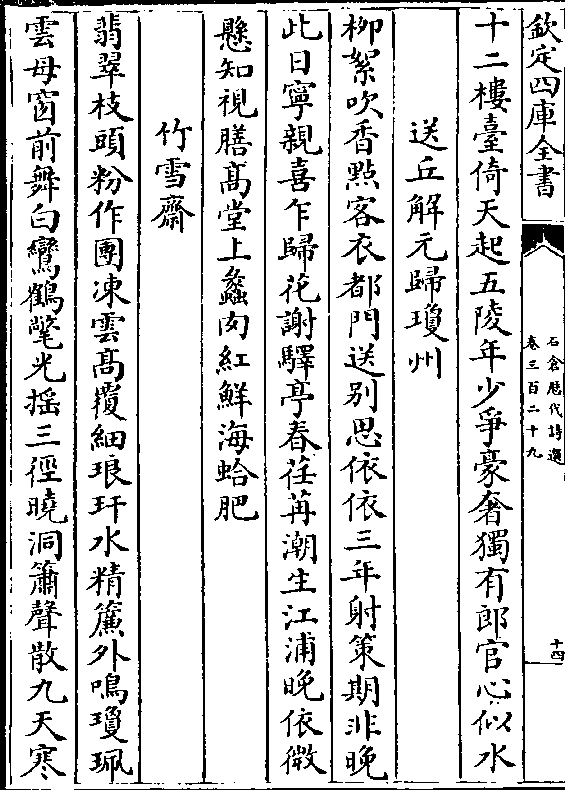 欽定四庫全書
石倉歷代詩選
卷三百二十九
十四
十二樓臺倚天起五陵年少爭豪奢獨有郎官心似水
送丘解元歸瓊州
柳絮吹香點客衣都門送别思依依三年射策期非晚
此日寧親喜乍歸花謝驛亭春荏苒潮生江浦晚依微
懸知視膳髙堂上蠡肉紅鮮海蛤肥
竹雪齋
翡翠枝頭粉作團凍雲髙覆細琅玕水精簾外鳴瓊珮
雲母窗前舞白鸞鶴氅光摇三徑曉洞簫聲散九天寒